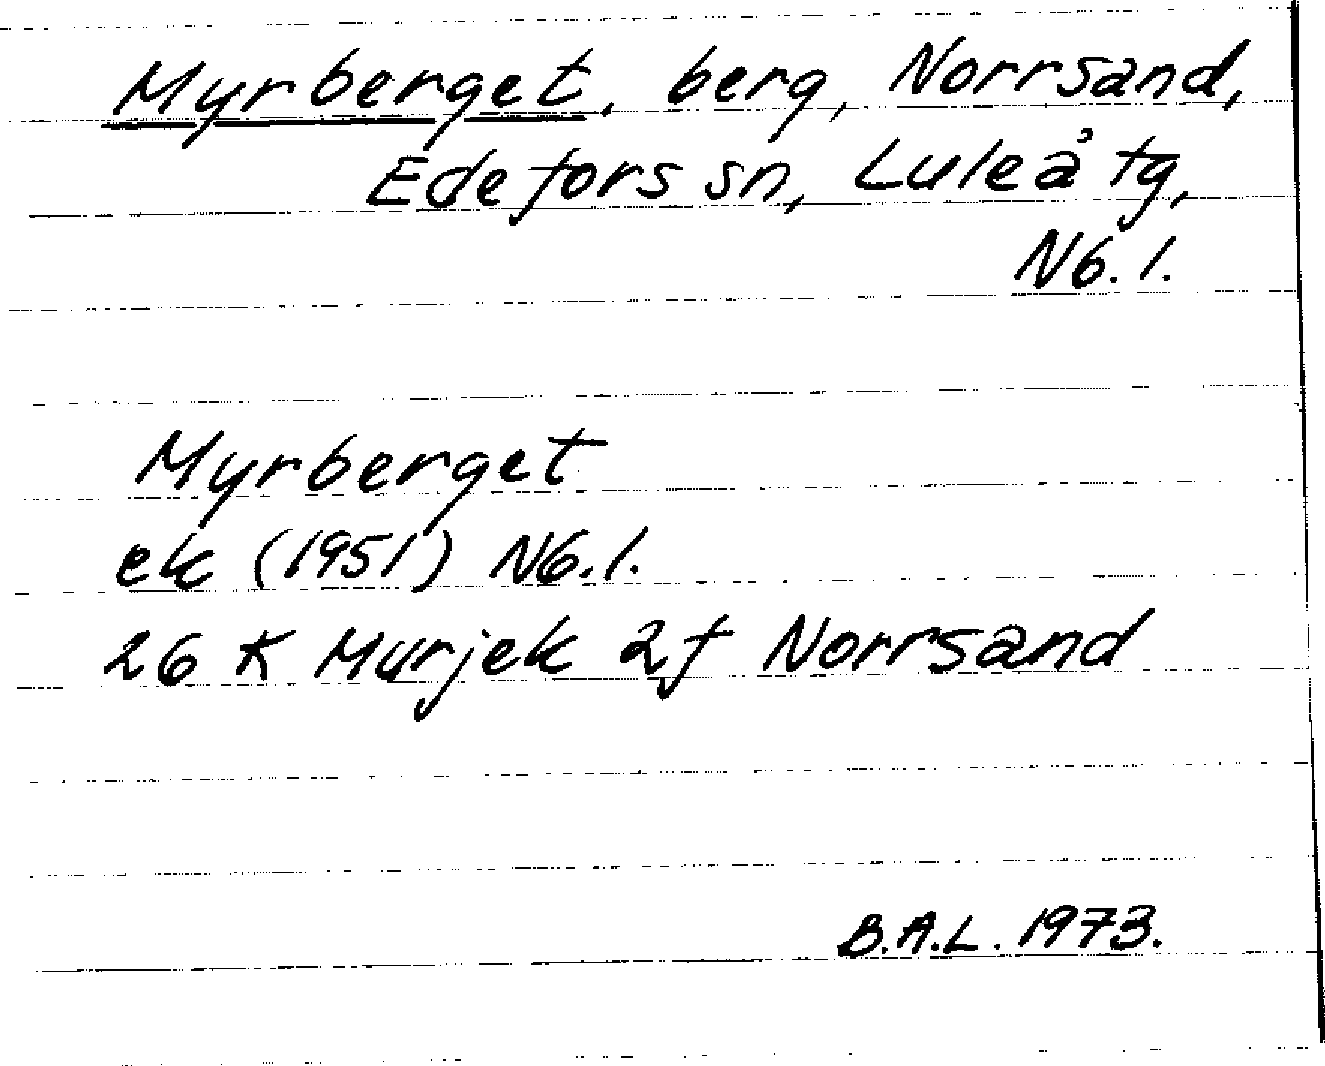 Myrberget, berg, Norrsand,
Edefors sn, Luleå tg,
Nb. l.
Myrberget
ek (1951) Nb. l.
26 K Murjek 2f Norrsand
B.A.L. 1973.